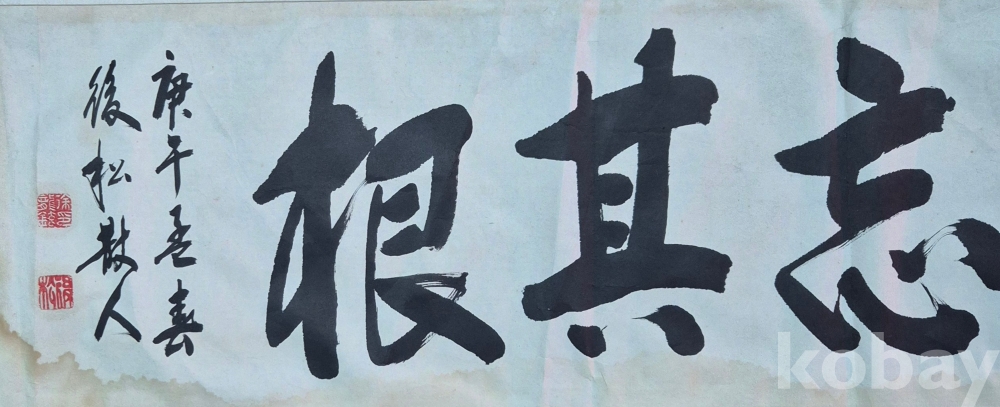 忘其根
庚午孟春
後松散人
kobay